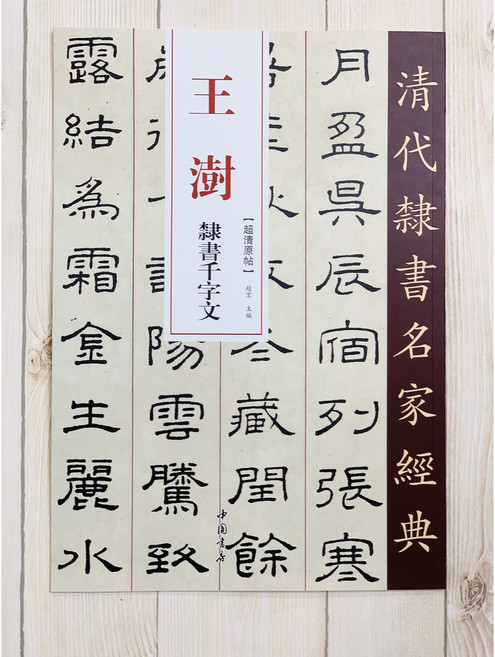 清代隸書名家經典
月盈昃辰宿列張寒
王澍
隸書千字文
【超清原帖】
趙宏 主編
冬藏閏餘
陽雲騰致
露結爲霜金生麗水
中国书店